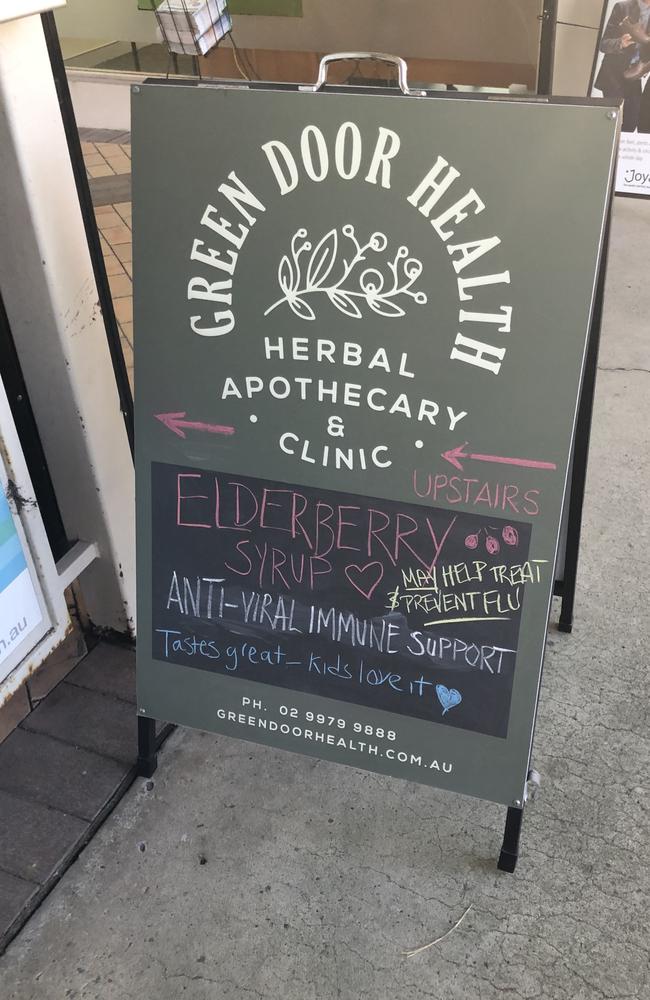 GREEN DOOR HEALTH
HERBAL
APOTHECARY
&
CLINIC
UPSTAIRS
ELDERBERRY
SYRUP
MAY HELP TREAT
& PREVENT FLU
ANTI-VIRAL IMMUNE SUPPORT
Tastes great - kids love it
PH. 02 9979 9888
GREENDOORHEALTH.COM.AU